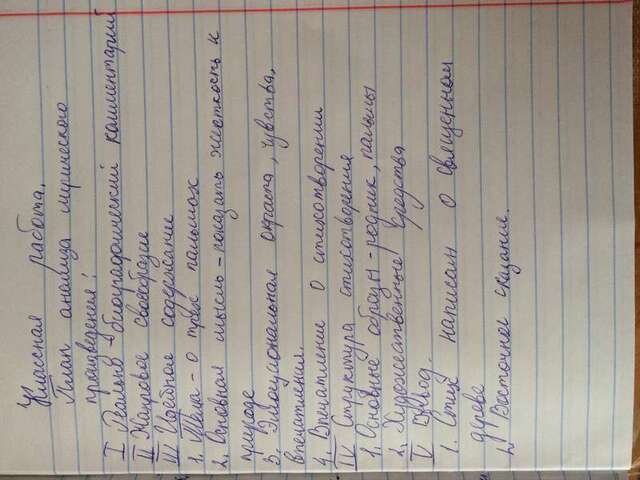 Классная работа.
План анализа лирического
произведения:
I Реально-биографический комментарий
II Жанровое своеобразие
III Идейное содержание
1. Тема - о трёх пальмах
2. Основная мысль - показать жестокость к
природе
3. Эмоциональная окраска, чувства,
впечатления.
4. Впечатление о стихотворении
IV Структура стихотворения
1. Основные образы - родник, пальмы
2. Художественные средства
V Вывод.
1. Стих написан о священном
дереве
2. Восточное сказание.